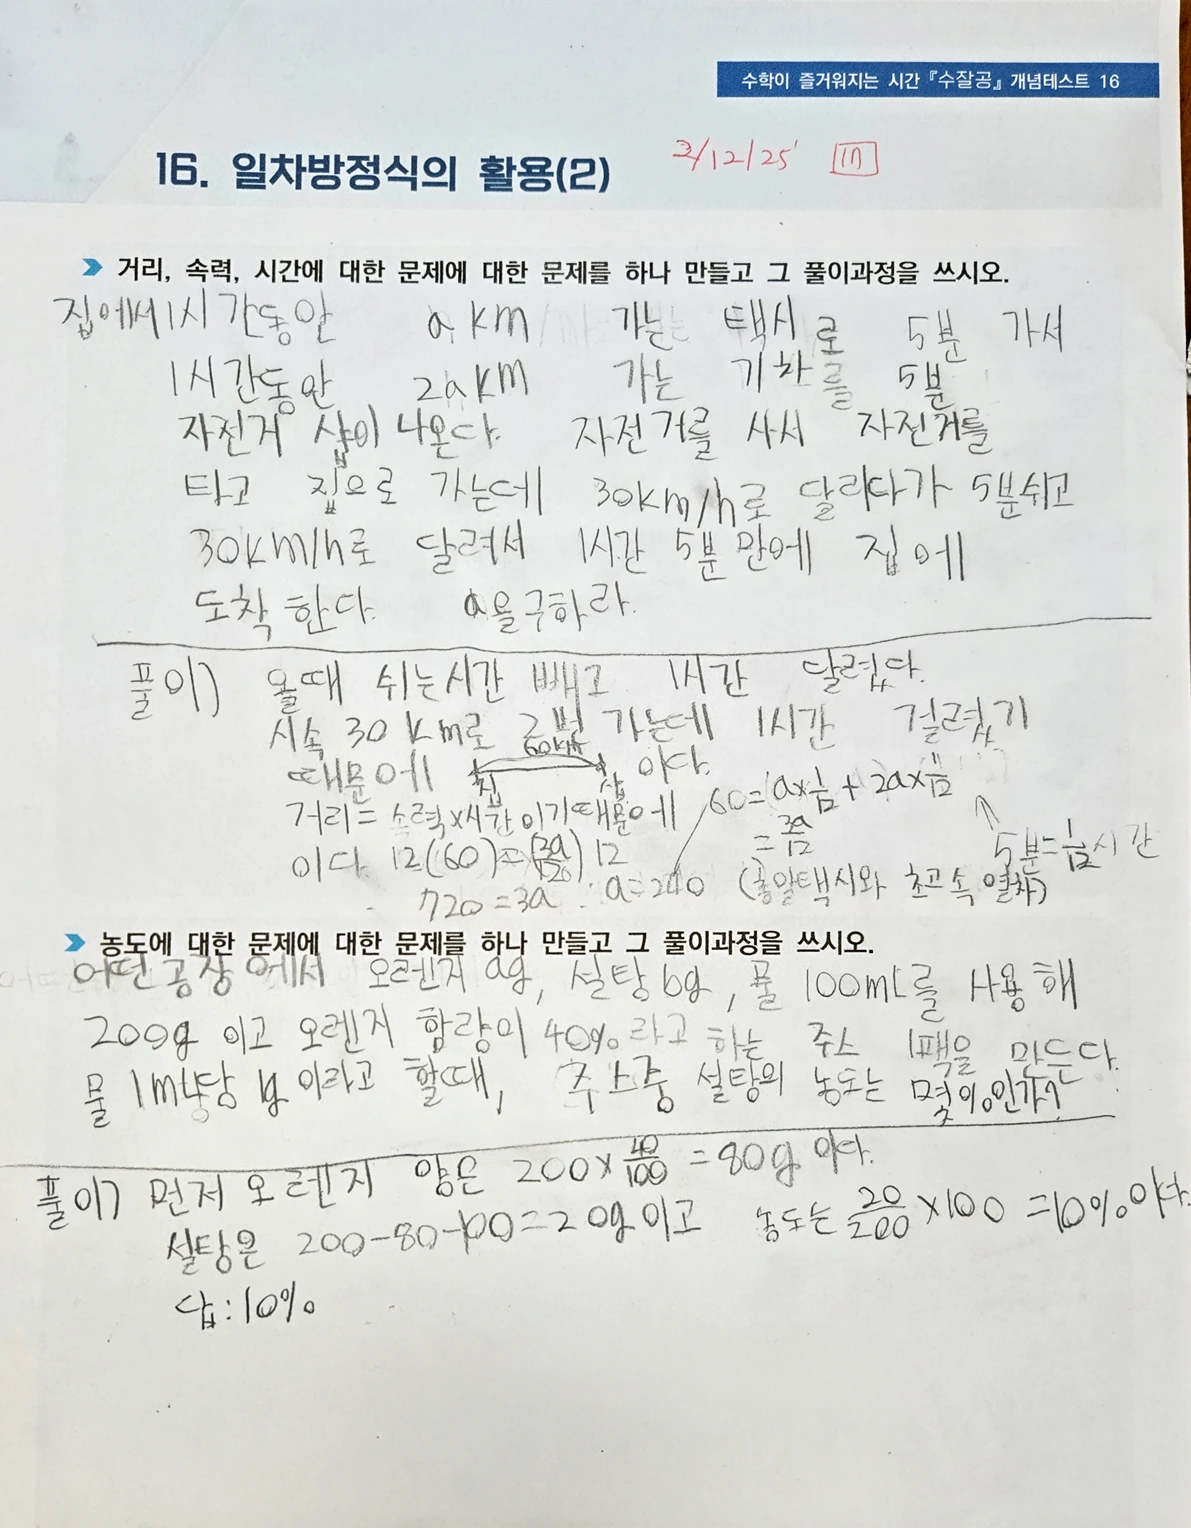 수학이 즐거워지는 시간 『수잘공』 개념테스트 16
16. 일차방정식의 활용(2)
3/12/25'
거리, 속력, 시간에 대한 문제에 대한 문제를 하나 만들고 그 풀이과정을 쓰시오.
집에서 1시간동안 a km 가는 택시로 5분 가서
1시간동안 2a km 가는 기차를 5분
자전거 샵이 나온다. 자전거를 사서 자전거를
타고 집으로 가는데 30km/h로 달리다가 5분쉬고
30km/h로 달려서 1시간 5분 만에 집에
도착한다. a을구하라.
풀이) 올때 쉬는시간 빼고 1시간 달렸다.
시속 30km로 2번 가는데 1시간 걸렸기
때문에 집 60km 샵 이다.
거리=속력×시간이기때문에 60=a×1/12+2a×1/12
=3a/12
5분=1/12시간
이다. 12(60)=(3a/12)12
720=3a ∴a=240 (총알택시와 초고속 열차)
농도에 대한 문제에 대한 문제를 하나 만들고 그 풀이과정을 쓰시오.
어떤공장에서 오렌지 ag, 설탕 bg, 물 100mL를 사용해
200g 이고 오렌지 함량이 40%라고 하는 주스 1팩을 만든다.
물 1mL당 1g이라고 할때, 주스중 설탕의 농도는 몇%인가?
풀이) 먼저 오렌지 양은 200×40/100=80g 이다.
설탕은 200-80-100=20g이고 농도는 20/200×100=10%이다.
답:10%